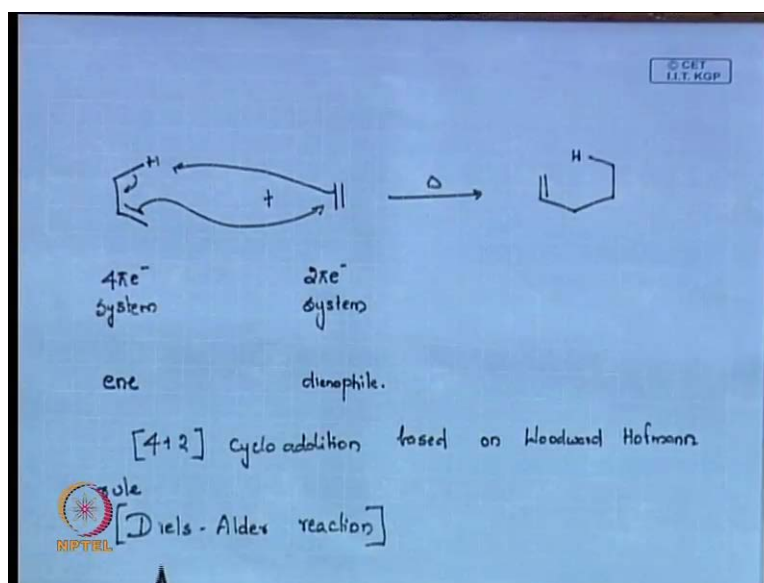 © CET
I.I.T. KGP
H
+
Δ
H
4πe⁻ 2πe⁻
system system
ene dienophile.
[4+2] cyclo addition based on Woodward Hofmann
rule
[Diels-Alder reaction]
NPTEL